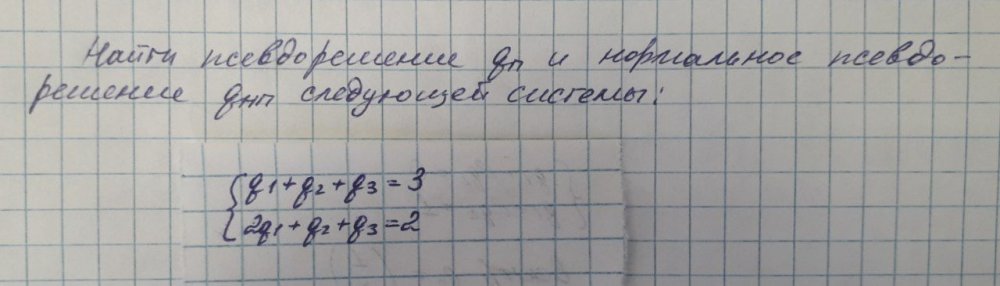 Найти псевдорешение qп и нормальное псевдо-
решение qнп следующей системы:
q1+q2+q3=3
2q1+q2+q3=2